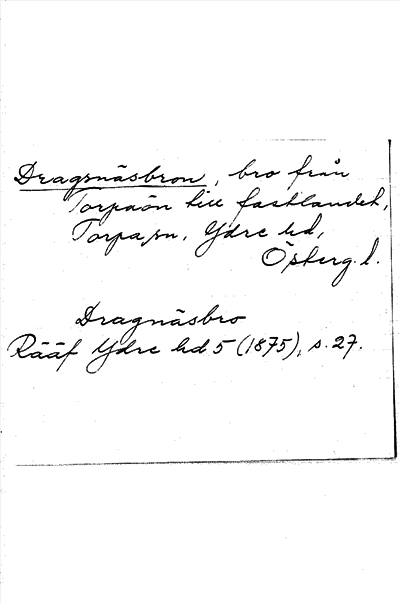 Dragsnäsbron, bro från
Torpaön till fastlandet,
Torpa sn, Ydre hd,
Österg. l.
Dragnäsbro
Rääf Ydre hd 5 (1875), s. 27.